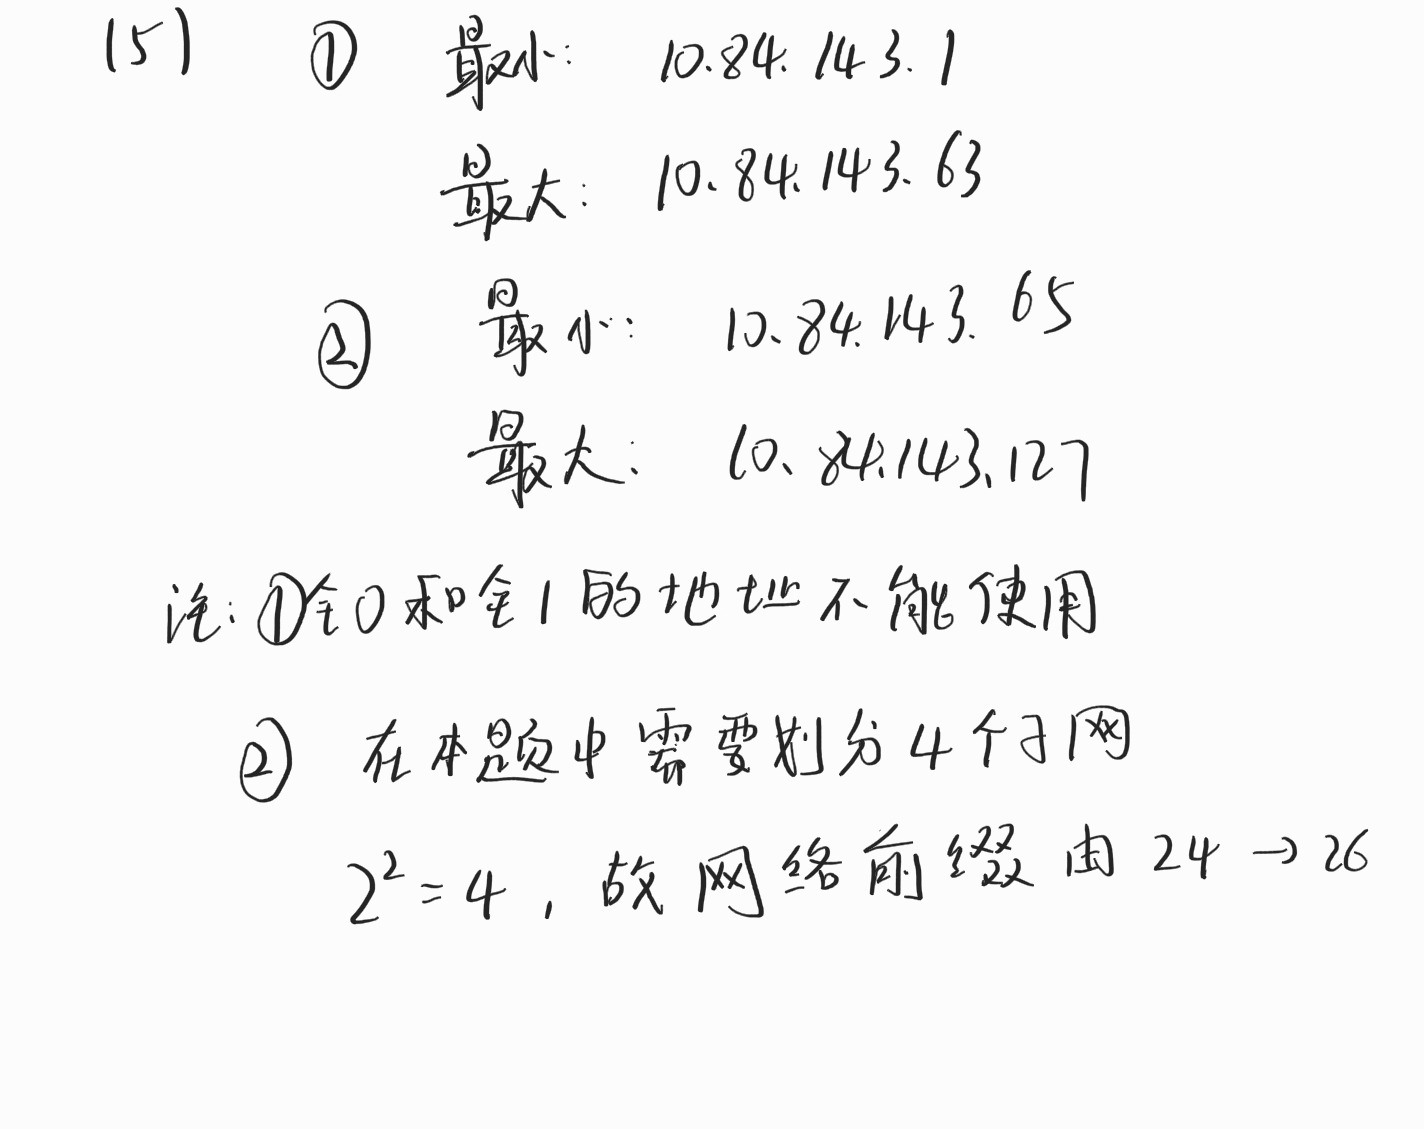 (5) ① 最小: 10.84.143.1
最大: 10.84.143.63
② 最小: 10.84.143.65
最大: 10.84.143.127
注: ①全0和全1的地址不能使用
② 在本题中需要划分4个子网
2²=4, 故网络前缀由24→26